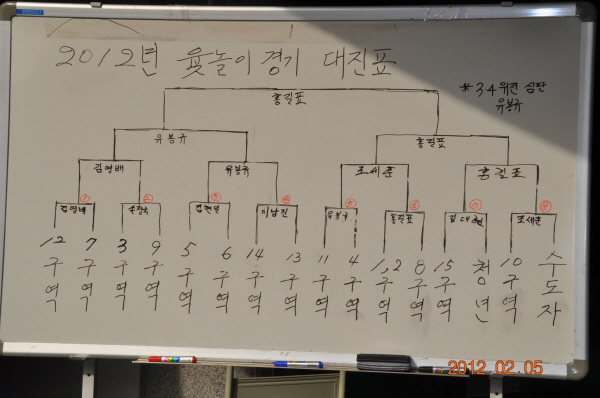 2012년 윷놀이 경기 대진표
*3·4위전 심판
유봉규
홍길표
유봉규 홍길표
김영배 유봉규 조세훈 홍길표
① ② ③ ④ ⑤ ⑥ ⑦ ⑧
김영배 김현일 이남진 유봉규 홍길표 조세훈
12구역 7구역 3구역 9구역 5구역 6구역 14구역 13구역 11구역 4구역 1,2구역 8구역 15구역 청년 10구역 수도자
2012.02.05